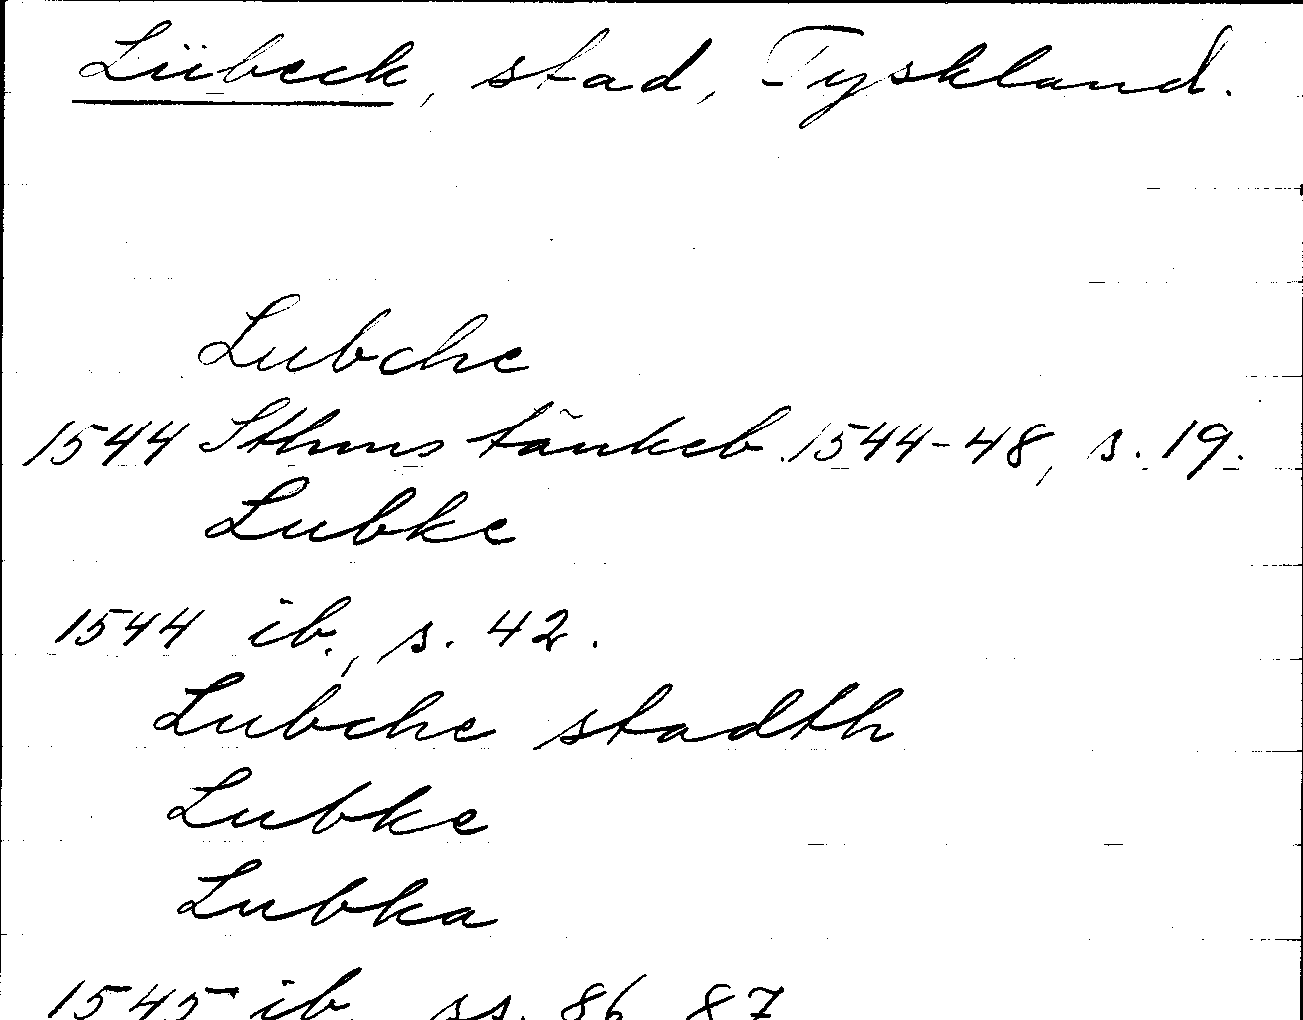 Lübeck, stad, Tyskland.
Lubche
1544 Sthms tänkeb. 1544-48, s. 19.
Lubke
1544 ib., s. 42.
Lubche stadth
Lubke
Lubka
1545 ib. ss. 86, 87